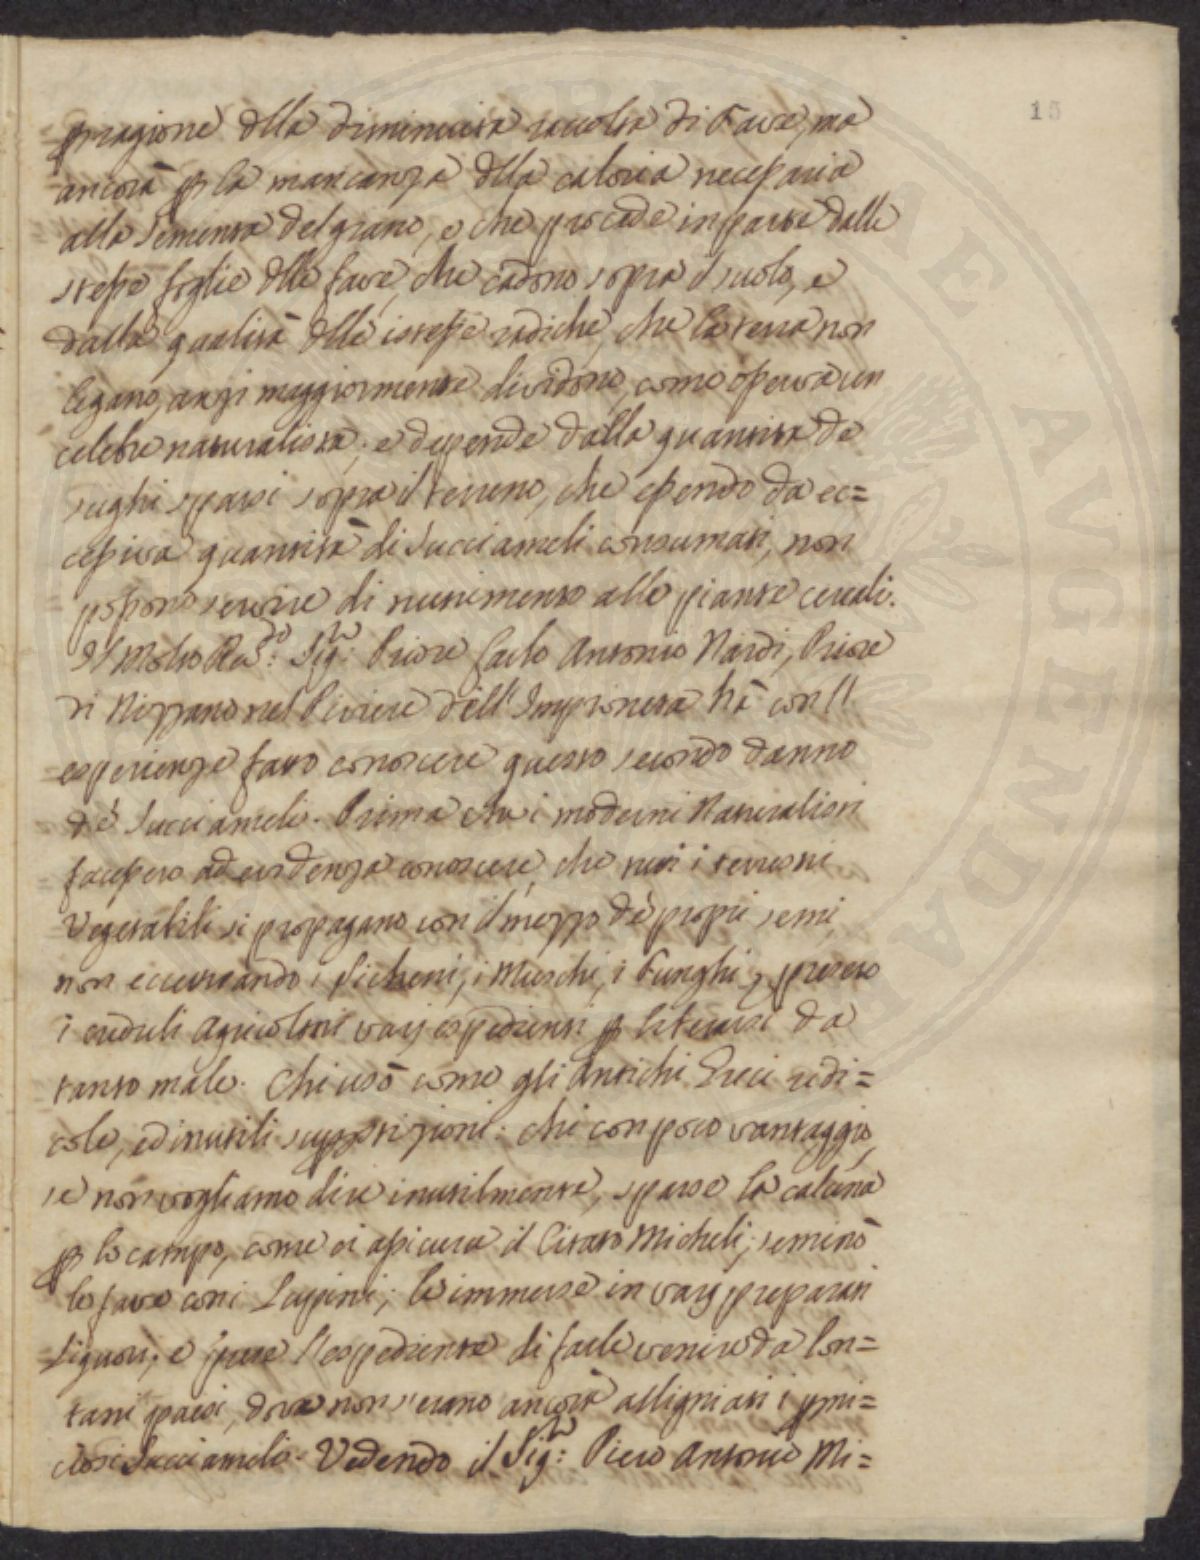 15
p ragione della diminuita raccolta di Fave, ma
ancora p la mancanza della caloria necessaria
alla sementa del grano, e che procede in parte dalle
stesse foglie delle fave, che cadono sopra il suolo, e
dalla qualità delle istesse radiche, che la terra non
legano, anzi maggiormente dividono, come osserva un
celebre naturalista; e depende dalla quantità de
sughi sparsi sopra il terreno, che essendo da ec=
cessiva quantità di Succiameli consumati, non
possono servire di nutrimento alle piante cereali.
Il Molto Revdo: Sigre: Priore Carlo Antonio Nardi, Priore
di Nizzano nel Piviere dell'Impruneta hà con l'
esperienza fatto conoscere questo secondo danno
de' Succiameli. Prima che i moderni Naturalisti
facessero ad evidenza conoscere, che tutti i terrestri
Vegetabili si propagano con il mezzo de' proprii semi,
non eccettuando i Licheni, i Muschi, i Funghi, presero
i creduli Agricoltori varj espedienti p liberarsi da
tanto male. Chi usò come gli Antichi Greci redi=
cole, ed inutili supstizioni: chi con poco vantaggio,
se non vogliamo dire inutilmente, sparse la calcina
p lo campo, come ci assicura il Citato Micheli; seminò
le fave con i Lupini; le immerse in varj preparati
Liquori; e prese l'espediente di farle venire da lon=
tani paesi, dove non s'erano ancora allignati i pni=
ciosi Succiameli. Vedendo il Sigre: Piero Antonio Mi=